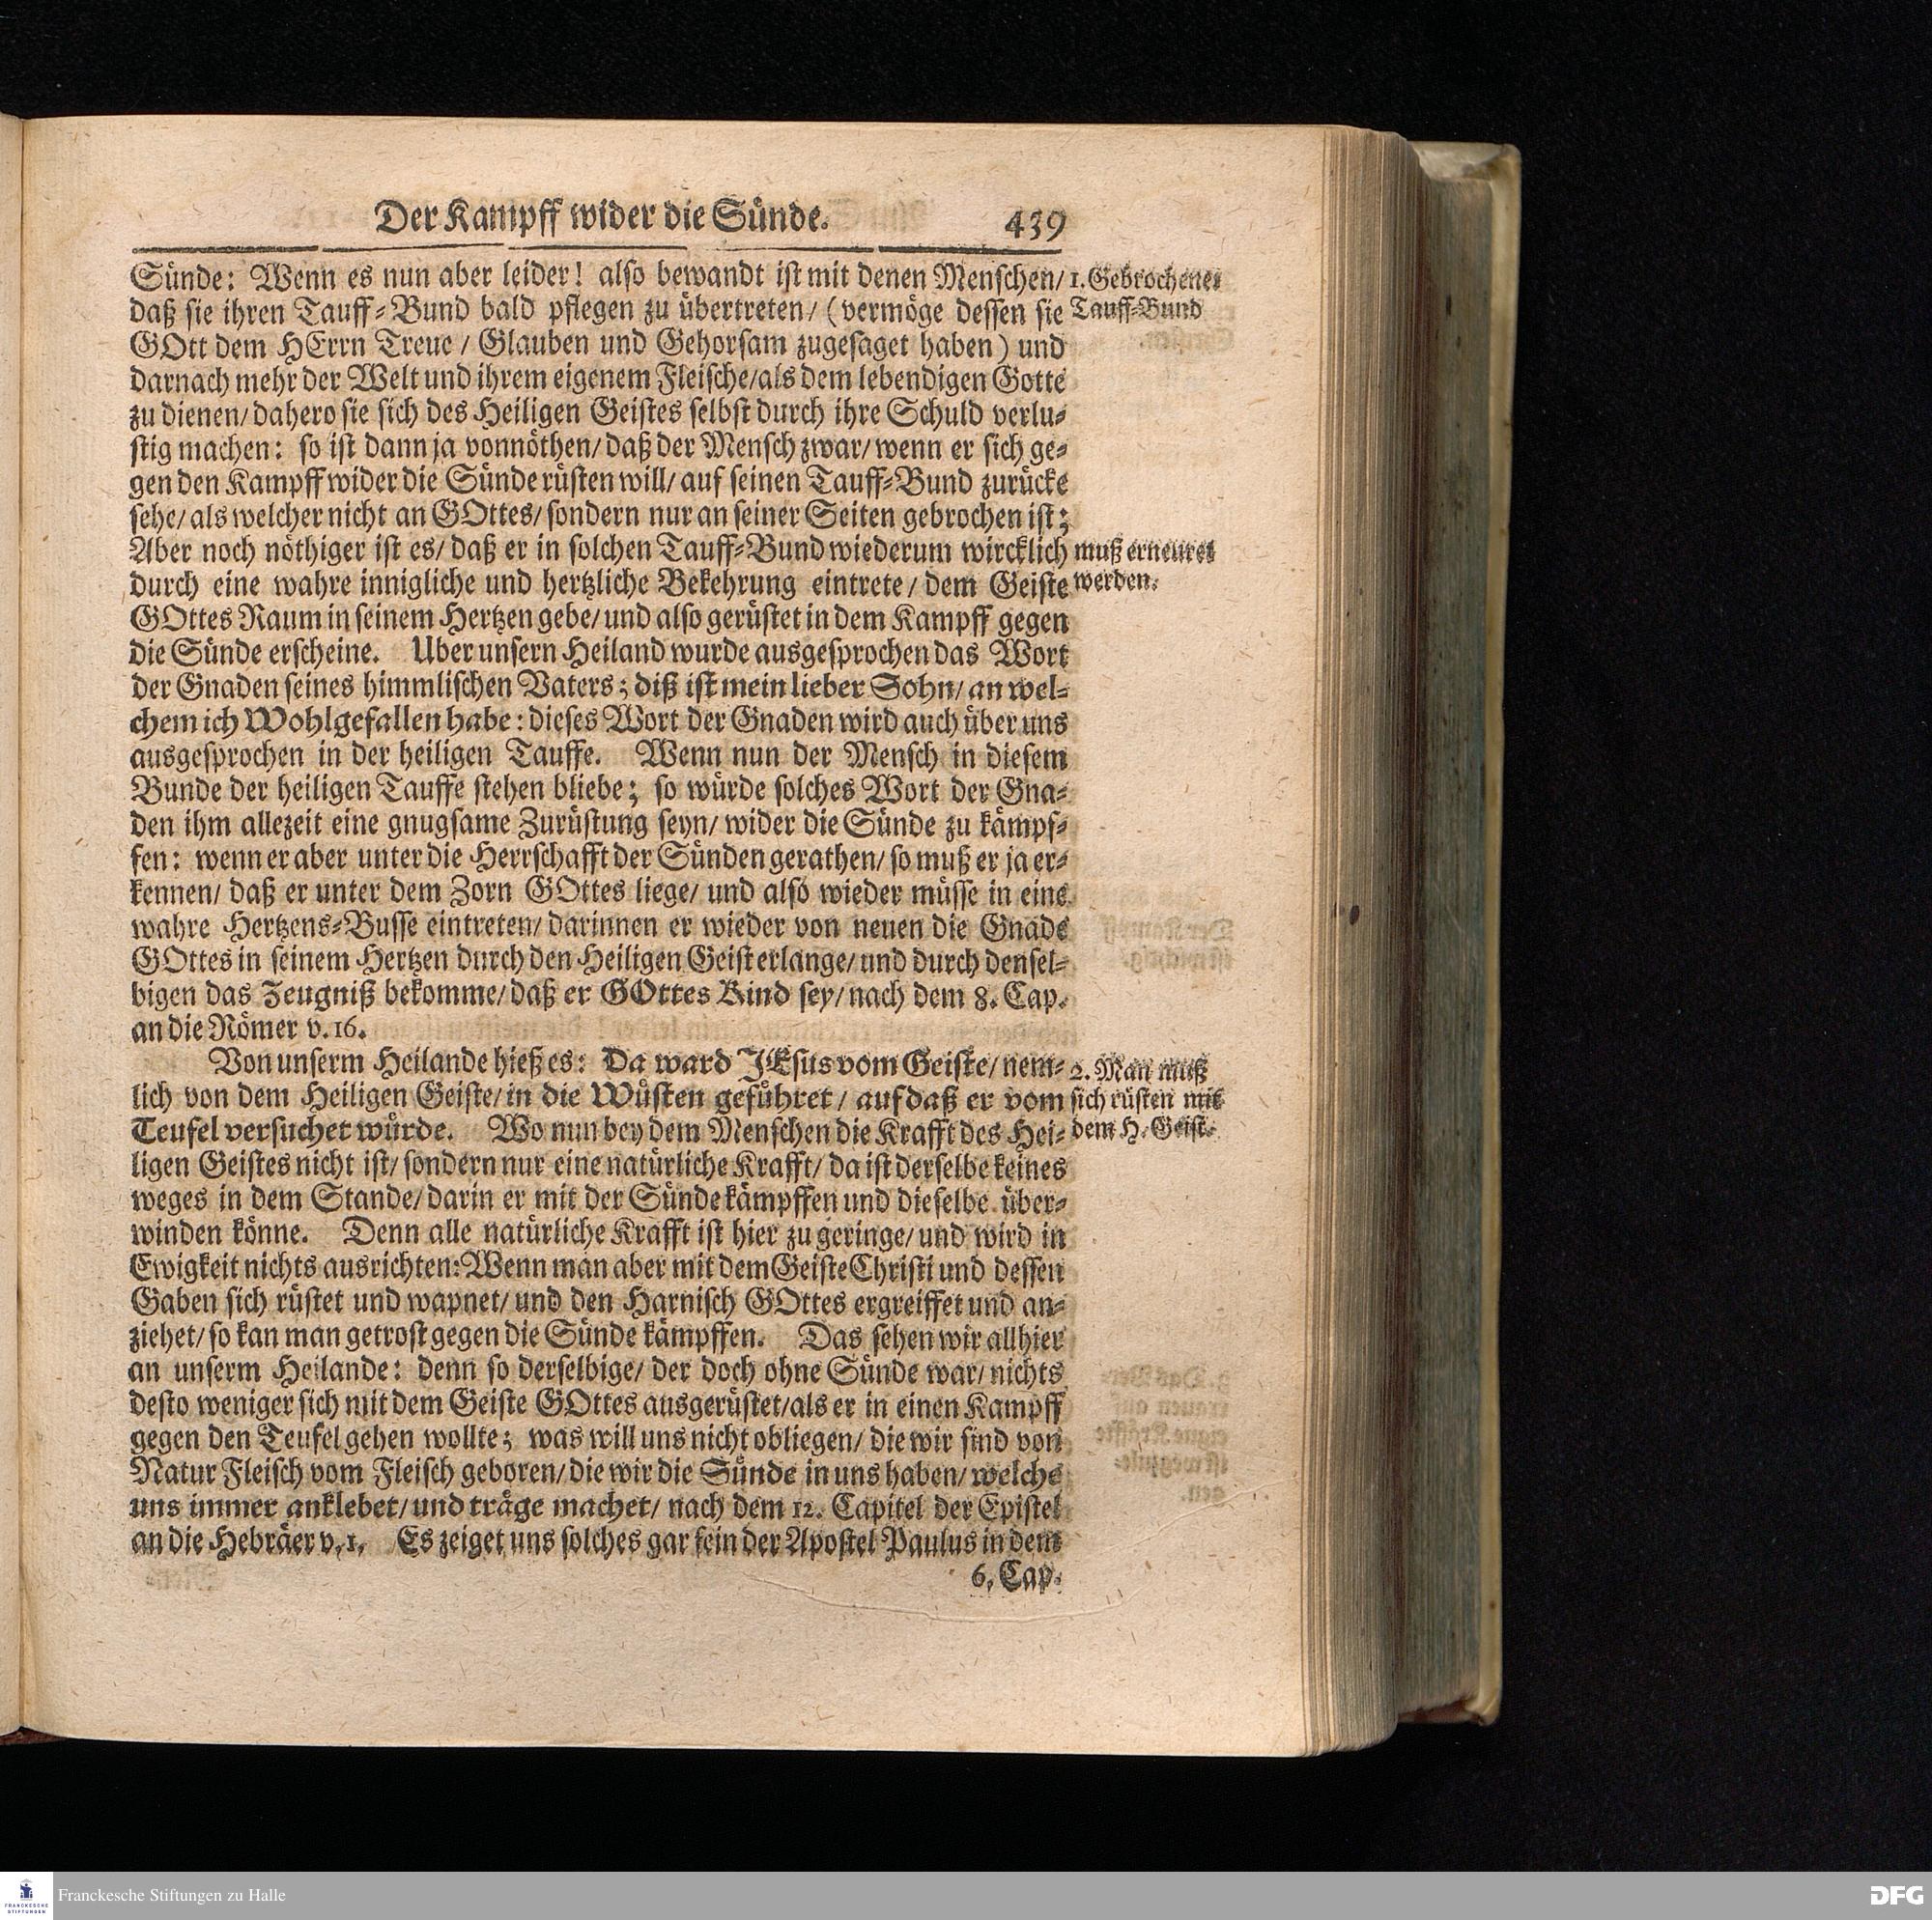 Der Kampff wider die Sünde. 439
Sünde: Wenn es nun aber leider! also bewandt ist mit denen Menschen/
daß sie ihren Tauff-Bund bald pflegen zu übertreten/ (vermöge dessen sie
GOtt dem HErrn Treue / Glauben und Gehorsam zugesaget haben) und
darnach mehr der Welt und ihrem eigenem Fleische/als dem lebendigen Gotte
zu dienen/ dahero sie sich des Heiligen Geistes selbst durch ihre Schuld verlu-
stig machen: so ist dann ja vonnöthen/ daß der Mensch zwar/ wenn er sich ge-
gen den Kampff wider die Sünde rüsten will/ auf seinen Tauff-Bund zurücke
sehe/ als welcher nicht an GOttes/ sondern nur an seiner Seiten gebrochen ist;
Aber noch nöthiger ist es/ daß er in solchen Tauff-Bund wiederum wircklich
durch eine wahre innigliche und hertzliche Bekehrung eintrete/ dem Geiste
GOttes Raum in seinem Hertzen gebe/ und also gerüstet in dem Kampff gegen
die Sünde erscheine. Uber unsern Heiland wurde ausgesprochen das Wort
der Gnaden seines himmlischen Vaters; diß ist mein lieber Sohn/ an wel-
chem ich Wohlgefallen habe: dieses Wort der Gnaden wird auch über uns
ausgesprochen in der heiligen Tauffe. Wenn nun der Mensch in diesem
Bunde der heiligen Tauffe stehen bliebe; so würde solches Wort der Gna-
den ihm allezeit eine gnugsame Zurüstung seyn/ wider die Sünde zu kämpf-
fen: wenn er aber unter die Herrschafft der Sünden gerathen/ so muß er ja er-
kennen/ daß er unter dem Zorn GOttes liege/ und also wieder müsse in eine
wahre Hertzens-Busse eintreten/ darinnen er wieder von neuen die Gnade
GOttes in seinem Hertzen durch den Heiligen Geist erlange/ und durch densel-
bigen das Zeugniß bekomme/ daß er GOttes Kind sey/ nach dem 8. Cap.
an die Römer v. 16.
Von unserm Heilande hieß es: Da ward JEsus vom Geiste/ nem-
lich von dem Heiligen Geiste/ in die Wüsten geführet / auf daß er vom
Teufel versuchet würde. Wo nun bey dem Menschen die Krafft des Hei-
ligen Geistes nicht ist/ sondern nur eine natürliche Krafft/ da ist derselbe keines
weges in dem Stande/ darin er mit der Sünde kämpffen und dieselbe über-
winden könne. Denn alle natürliche Krafft ist hier zu geringe/ und wird in
Ewigkeit nichts ausrichten: Wenn man aber mit dem Geiste Christi und dessen
Gaben sich rüstet und wapnet/ und den Harnisch GOttes ergreiffet und an-
ziehet/ so kan man getrost gegen die Sünde kämpffen. Das sehen wir allhier
an unserm Heilande: denn so derselbige/ der doch ohne Sünde war/ nichts
desto weniger sich mit dem Geiste GOttes ausgerüstet/als er in einen Kampff
gegen den Teufel gehen wollte; was will uns nicht obliegen/ die wir sind von
Natur Fleisch vom Fleisch geboren/ die wir die Sünde in uns haben/ welche
uns immer anklebet/ und träge machet/ nach dem 12. Capitel der Epistel
an die Hebräer v. 1. Es zeiget uns solches gar fein der Apostel Paulus in dem
6. Cap.
1. Gebrochener
Tauff-Bund
muß erneuret
werden.
2. Man muß
sich rüsten mit
dem H. Geist.
Franckesche Stiftungen zu Halle
FRANCKESCHE
STIFTUNGEN
DFG